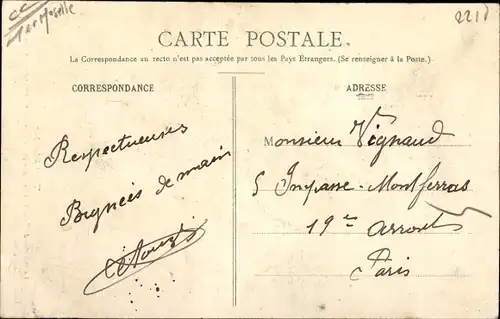 2218
CARTE POSTALE.
La Correspondance au recto n'est pas acceptée par tous les Pays Étrangers. (Se renseigner à la Poste.)
CORRESPONDANCE
Respectueuses
Pognées de main
ADRESSE
Monsieur Vignaud
5 Impasse-Montferras
19e Arront
Paris